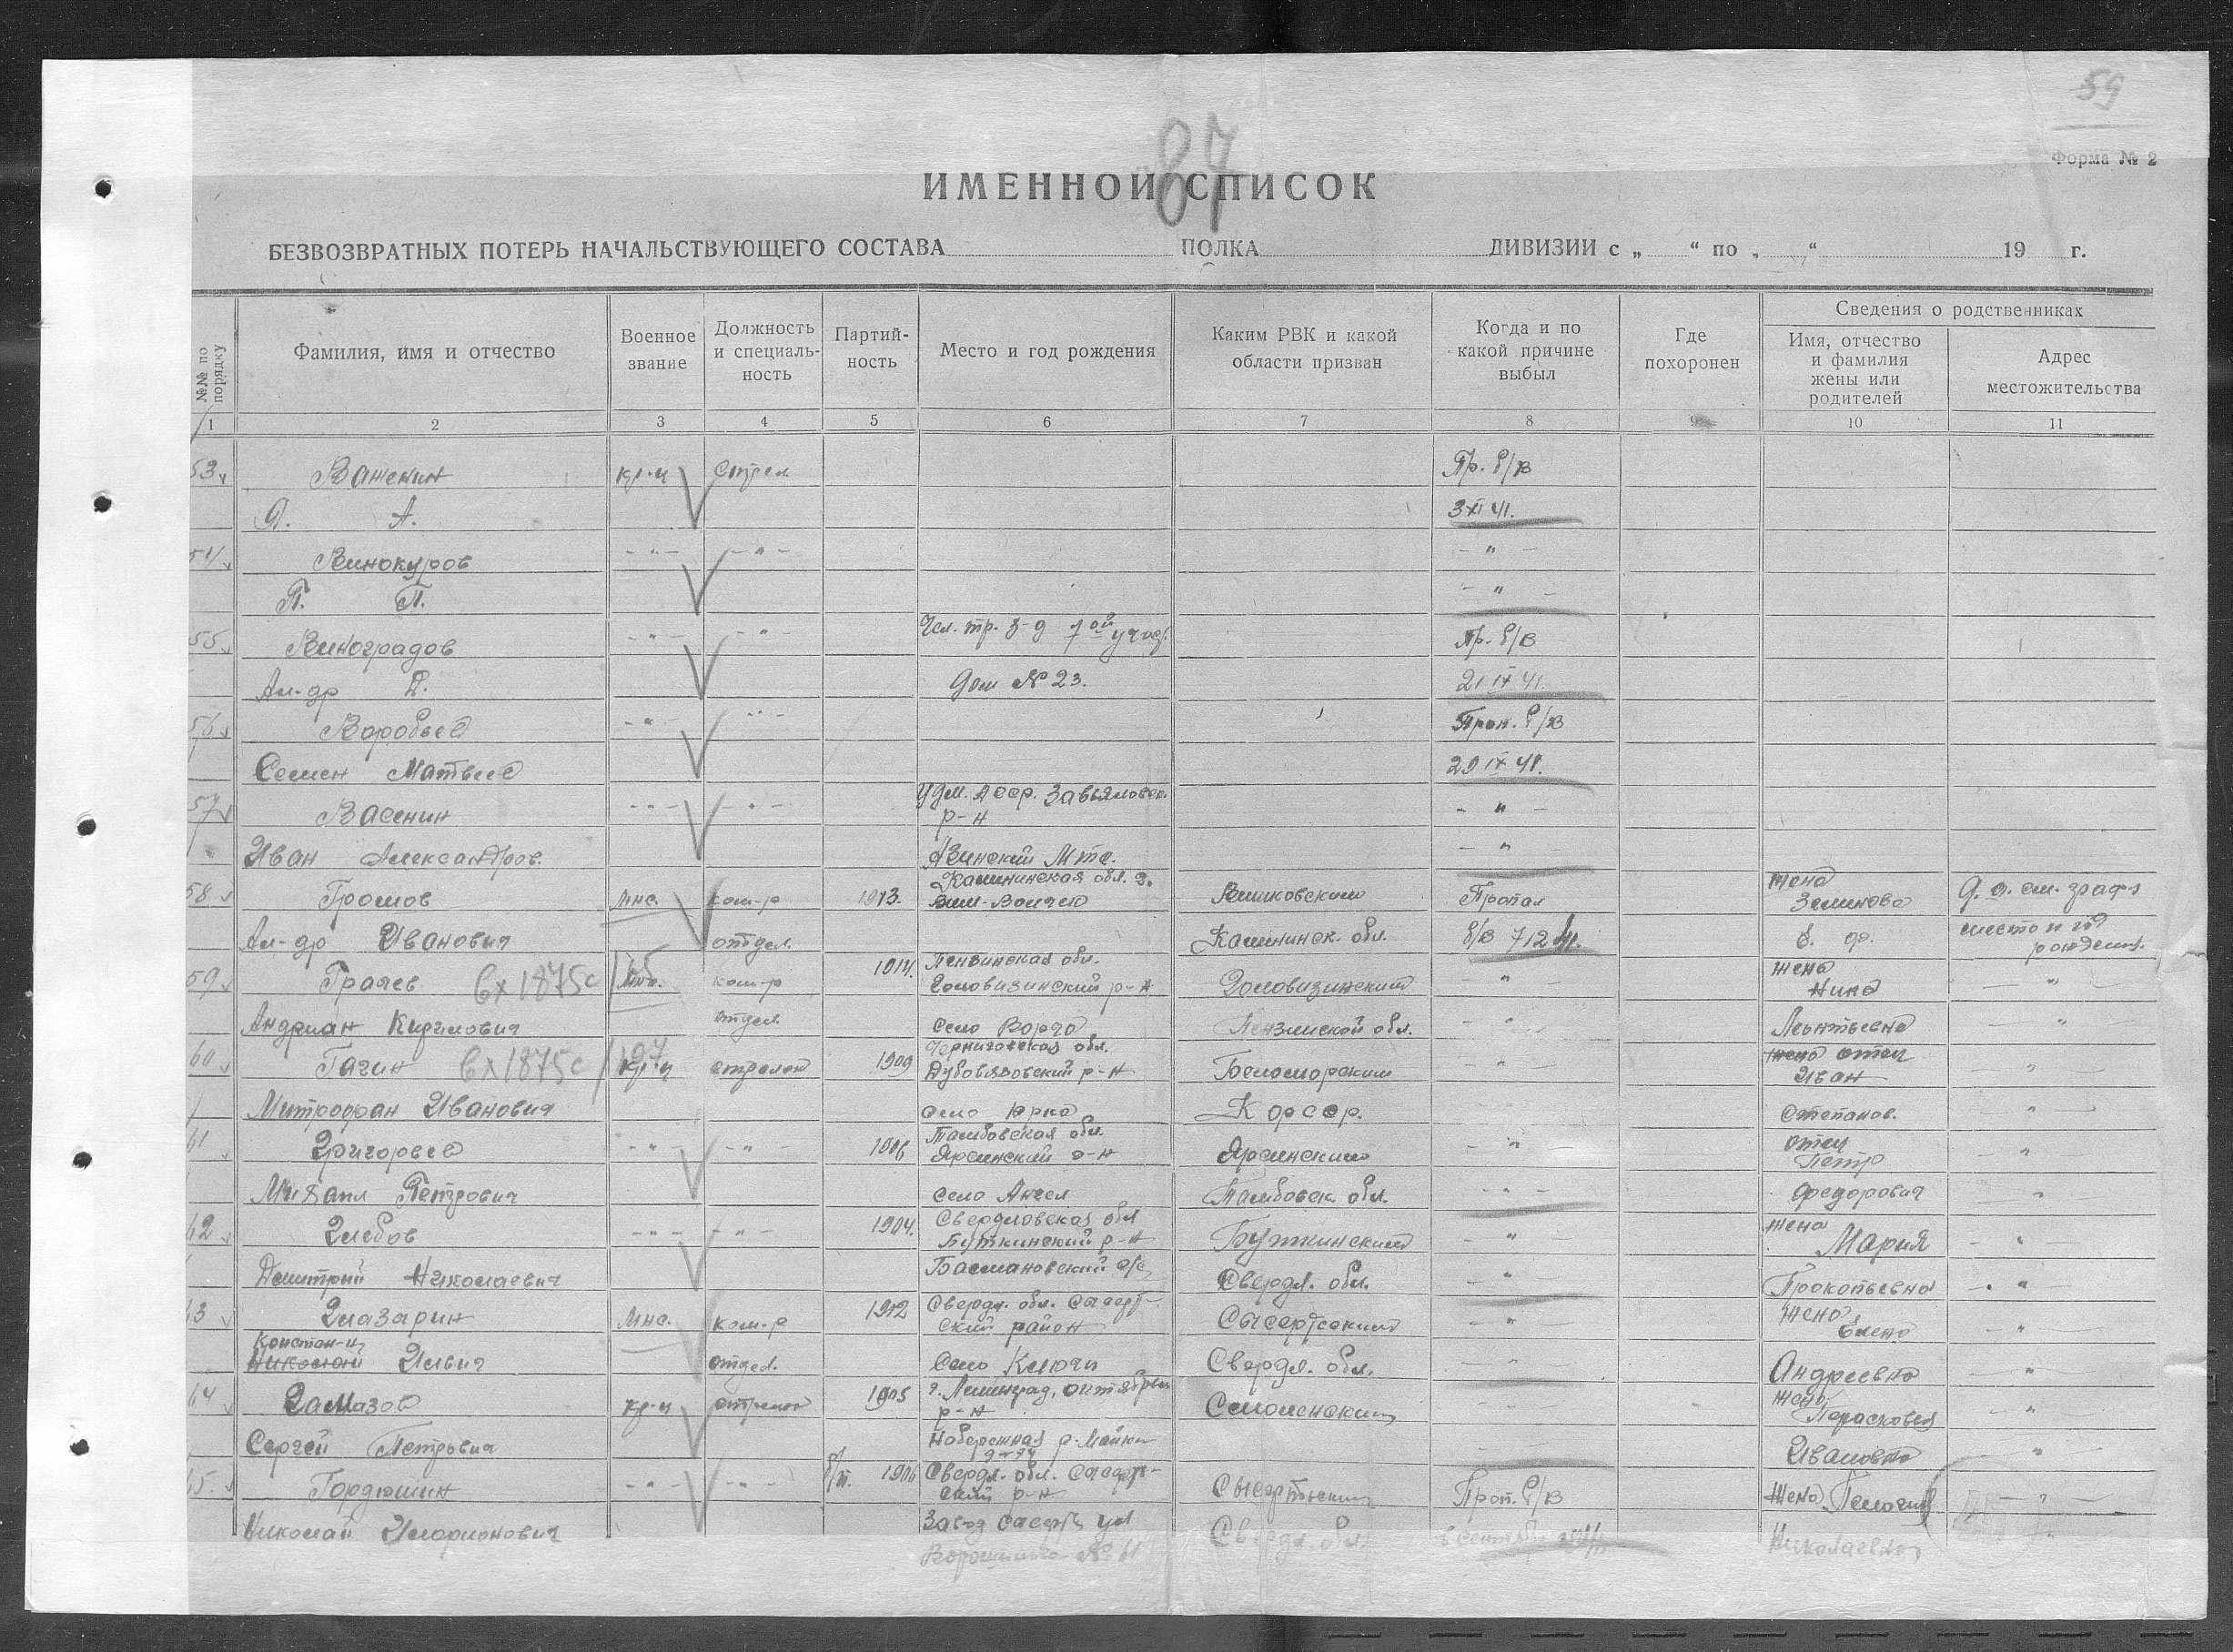 59
87
Форма № 2
ИМЕННОЙ СПИСОК
БЕЗВОЗВРАТНЫХ ПОТЕРЬ НАЧАЛЬСТВУЮЩЕГО СОСТАВА ПОЛКА ДИВИЗИИ с „ “ по „ “ 19 г.
№№ по порядку
Фамилия, имя и отчество
Военное звание
Должность и специаль-ность
Партий-ность
Место и год рождения
Каким РВК и какой области призван
Когда и по какой причине выбыл
Где похоронен
Сведения о родственниках
Имя, отчество и фамилия жены или родителей
Адрес местожительства
1 2 3 4 5 6 7 8 9 10 11
53 Важенин кр-ц Стрел Пр. б/в
Я. А. 3 XI 41.
54 Винокуров - " - - " - - " -
П. П. - " -
55 Виноградов - " - - " - Чел. тр. з-д 7ой участ. Пр. б/в
Ал-др Д. дом № 23. 21 IX 41.
56 Воробьев - " - - " - Проп. б/в
Семен Матвеев 29 IX 41.
57 Васенин - " - - " - Удм. АССР. Завьяловск. р-н - " -
Иван Александров. Азинский Мтс. - " -
58 Громов Мнс. ком-р 1913. Калининская обл. г. Выш-Волчек Пропал женаЗемкова д. а. см. граф
Ал-др Иванович отдел. Калининск. обл. б/в 7 12 41. место и год рожден.
59 Грачев вх 1875с Мнс. ком-р 1914. Пензинская обл. Головизинский р-н Головизинский - " - жена Нина - " -
Андриан Кирилович отдел. село Пензинской обл. - " - Леонтьевна - " -
60 Гагин вх 1875с кр-ц стрелок 1909 Черниговская обл. Дубовязовский р-н Беломорским - " - отец Иван - " -
Митрофан Иванович село Юрка К фсср. Степанов. - "
61 Григорьев - " - - " - 1906 Тамбовская обл. р-н - " - отец Петр - "
Михаил Петрович село Тамбовск. обл. - " - Федорович - "
62 Глебов - " - - " - 1904. Свердловская обл Буткинский р-н Буткинский - " - жена Мария - "
Дмитрий Николаевич Басмановский с/с Свердл. обл. - " - Прокопьевна - "
63 Глазарин Мнс. ком-р 1912 Свердл. обл. Сысерт-ский район Сысертский - " - Жена Елена - " -
Констан-н Николай Ильич отдел. Село Ключи Свердл. обл. - " - Андреевна - "
64 Гамазов кр-ц стрелок 1905 г. Ленинград, октябрьск р-н Смоленским - - жена Парасковья - "
Сергей Петрович Набережная р. Мойки - - Ивановна - "
65. Гордюшин - " - - " - б/п. 1906 Свердл. обл. Сысерт-ский р-н Сысертским Проп. б/в Жена Пелагия - " -
Николай Иларионович Завод Сысерть ул Свердл. обл в сентябре 1941 Николаевна
Ворошилова № 61